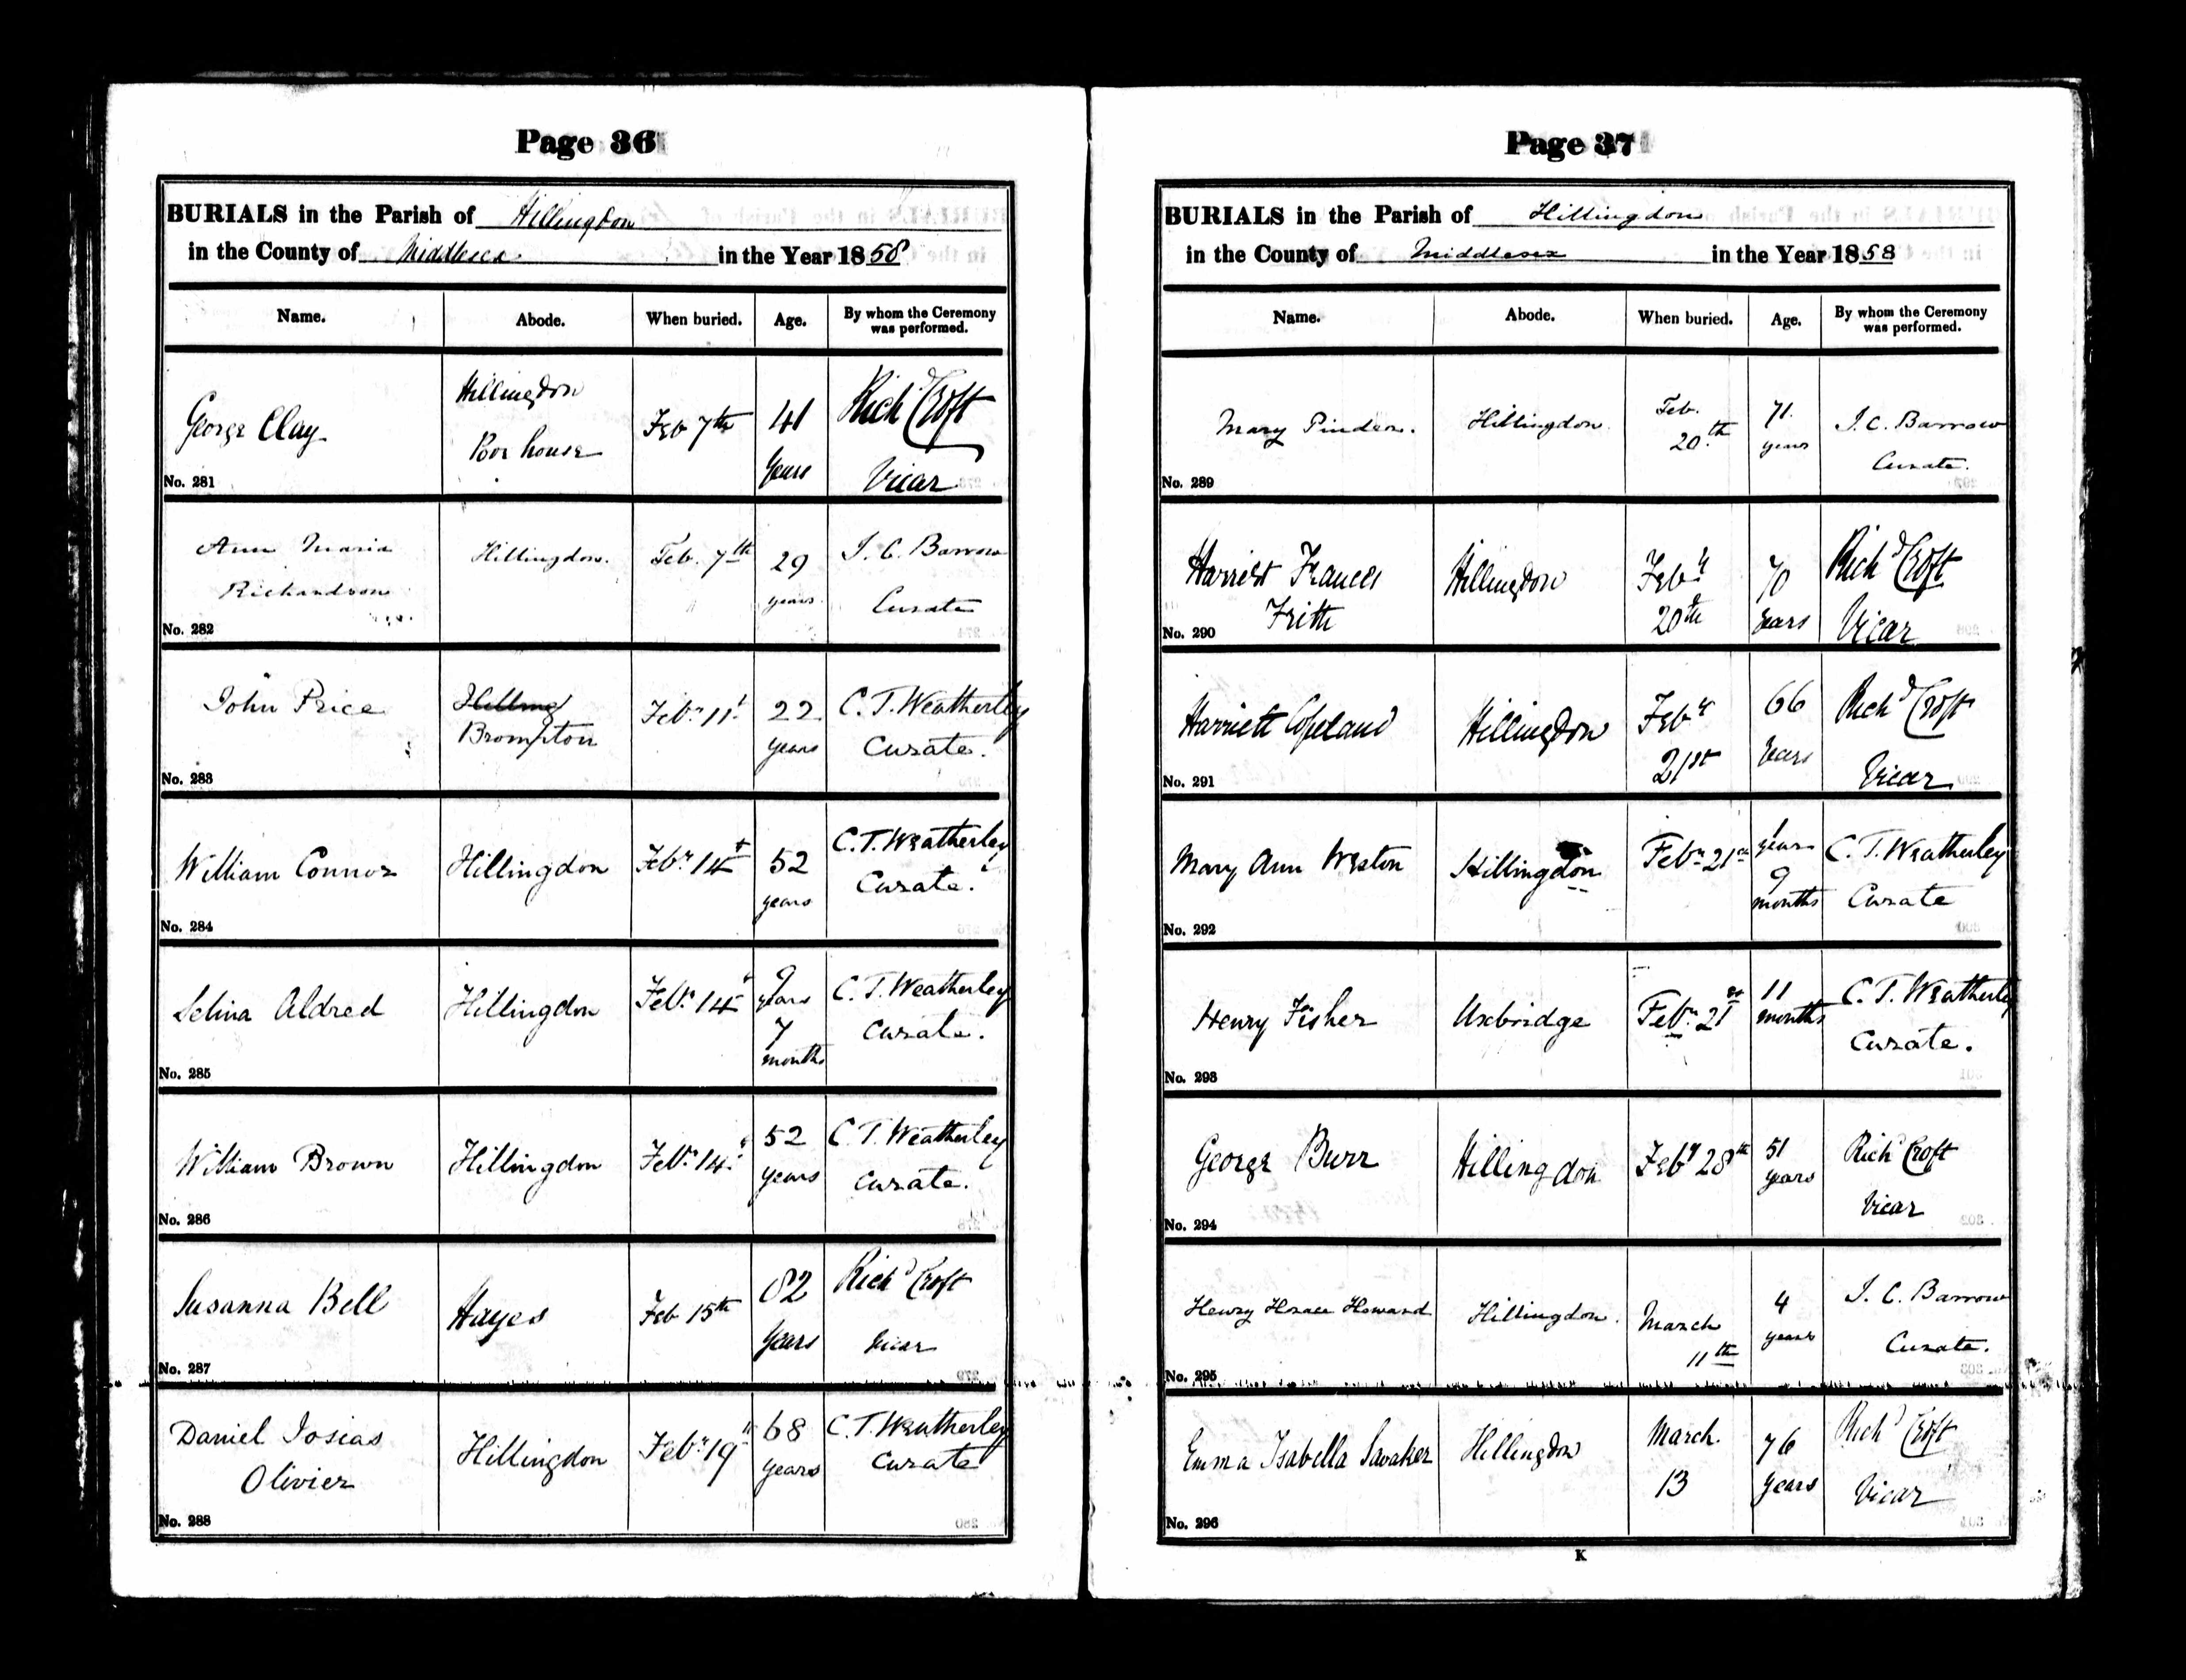 Page 36
BURIALS in the Parish of Hillingdon
in the County of Middlesex in the Year 1858
Name. Abode. When buried. Age. By whom the Ceremony was performed.
George Clay Hillingdon Feb 7th 41 Richd Croft
Poor house Years Vicar
No. 281
Ann Maria Hillingdon. Feb. 7th 29 J. C. Barrow
Richardson years. Curate
No. 282
John Price Hilling Feby. 11th 22 C. T. Weatherley
Brompton years Curate.
No. 283
William Connor Hillingdon Feby. 14th 52 C. T. Weatherley
years Curate.
No. 284
Selina Aldred Hillingdon Feby. 14th 9 years C. T. Weatherley
7 months Curate.
No. 285
William Brown Hillingdon Feby. 14th 52 C. T. Weatherley
years Curate.
No. 286
Susanna Bell Hayes Feb 15th 82 Richd Croft
Years Vicar
No. 287
Daniel Josias Hillingdon Feby. 19th 68 C. T. Weatherley
Olivier years Curate
No. 288
Page 37
BURIALS in the Parish of Hillingdon
in the County of Middlesex in the Year 1858
Name. Abode. When buried. Age. By whom the Ceremony was performed.
Mary Pinder. Hillingdon. Feb. 71. J. C. Barrow
20.th years Curate.
No. 289
Harriet Frances Hillingdon Feby 70 Richd Croft
Frith 20th Years Vicar
No. 290
Harriett Copeland Hillingdon Feby 66 Richd Croft
21st Years Vicar
No. 291
Mary Ann Weston Hillingdon Feby. 21st 1 years C. T. Weatherley
9 months Curate
No. 292
Henry Fisher Uxbridge Feby. 21st 11 C. T. Weatherley
months Curate.
No. 293
George Burr Hillingdon Feby 28th 51 Richd Croft
years Vicar
No. 294
Henry Horace Howard Hillingdon. March 4 J. C. Barrow
11th years Curate.
No. 295
Emma Isabella Hillingdon March. 76 Richd Croft
13 Years Vicar
No. 296
K